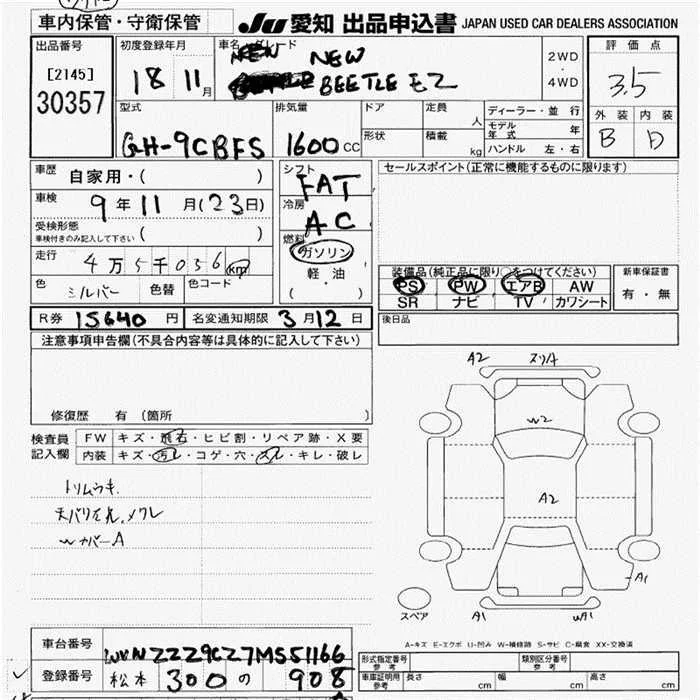 車内保管・守衛保管
JU 愛知 出品申込書 JAPAN USED CAR DEALERS ASSOCIATION
出品番号
[2145]
30357
初度登録年月
18 11月
車名・グレード
NEW
BEETLE EZ
2WD
・
4WD
評価点
3.5
外装 内装
B D
型式
GH-9CBFS
排気量
1600CC
ドア
形状
定員 人
積載 kg
ディーラー・並行
モデル年式 年
ハンドル 左・右
車歴 自家用・( )
車検 9年11月(23日)
受検形態
車検付きのみ記入して下さい ( )
走行 4万5千036km
色 シルバー 色替 色コード
シフト FAT
冷房 AC
燃料
ガソリン
・
軽・油
( )
セールスポイント(正常に機能するものに限ります)
装備品(純正品に限り○をつけてください)
PS PW エアB AW
SR ナビ TV カワシート
新車保証書
有・無
R券 15640円 名変通知期限 3月12日
後日品
注意事項申告欄(不具合内容等は具体的に記入して下さい)
修復歴 有(箇所 )
検査員記入欄
FW キズ・飛石・ヒビ割・リペア跡・X要
内装 キズ・汚レ・コゲ・穴・スレ・キレ・破レ
トリムウキ
W カバーA
A2
W2
A2
A1
スペア
A1
A-キズ E-エクボ U-凹み W-補修跡 S-サビ C-腐食 XX-交換済
車台番号 WVWZZZ9CZ7M551166
登録番号 松本 300 の 908
形式指定番号
参考
類別区分番号
参考
車庫証明用
参考
長さ cm 幅 cm 高さ cm